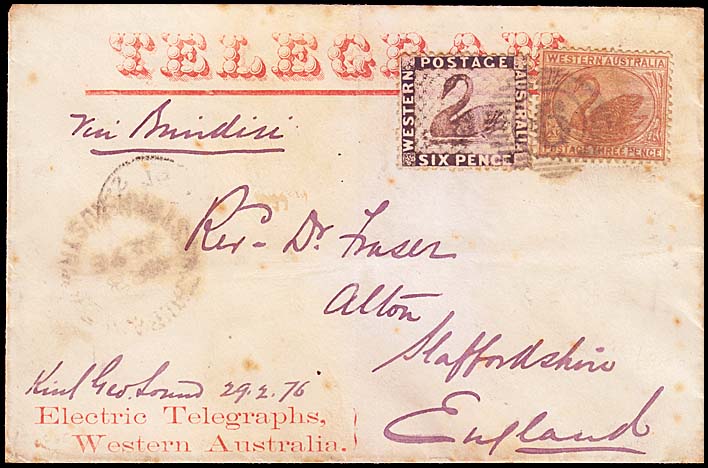 TELEGRAM
POSTAGE
WESTERN
AUSTRALIA
SIX PENCE
WESTERN AUSTRALIA
POSTAGE THREE PENCE
Via Brindisi
Rev. Dr. Fraser
Alton
Staffordshire
England
King Geo. Sound 29.2.76
Electric Telegraphs,
Western Australia.